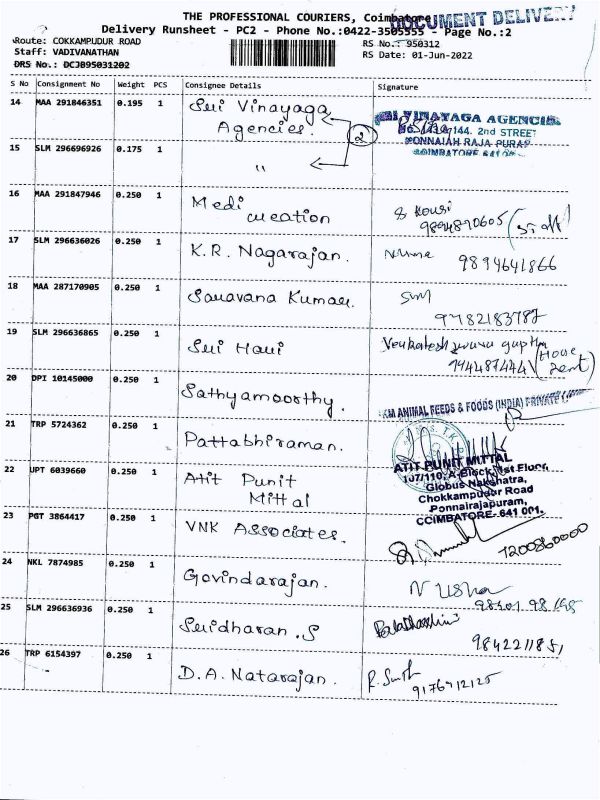 THE PROFESSIONAL COURIERS, Coimbatore
DOCUMENT DELIVERY
Delivery Runsheet - PC2 - Phone No.:0422-3505555 - Page No.:2
Route: COKKAMPUDUR ROAD
RS No.: 950312
Staff: VADIVANATHAN
RS Date: 01-Jun-2022
DRS No.: DCJB95031202
S No Consignment No Weight PCS Consignee Details Signature
14 MAA 291846351 0.195 1 Sri Vinayaga
Agencies.
VINAYAGA AGENCIES
144. 2nd STREET
PONNAIAH RAJA PURAM
COIMBATORE
2
15 SLM 296696926 0.175 1 "
16 MAA 291847946 0.250 1 Medi
creation
9894890605 (Staff)
17 SLM 296636026 0.250 1 K.R. Nagarajan.
9894641866
18 MAA 287170905 0.250 1 Saravana Kumar.
9782183787
19 SLM 296636865 0.250 1 Sri Hari
20 DPI 10145000 0.250 1 Sathyamoorthy.
KM ANIMAL FEEDS & FOODS (INDIA) PRIVATE
21 TRP 5724362 0.250 1 Pattabhiraman.
22 UPT 6039660 0.250 1 Atit Punit
Mittal
ATIT PUNIT MITTAL
107/110, A-Block, 1st Floor,
Globus Nakshatra,
Chokkampudur Road
Ponnairajapuram,
COIMBATORE- 641 001.
23 PGT 3864417 0.250 1 VNK Associates.
7200860000
24 NKL 7874985 0.250 1 Govindarajan.
N Usha
25 SLM 296636936 0.250 1 Sridharan.S
9842211851
26 TRP 6154397 0.250 1 D.A. Natarajan.
9176912125